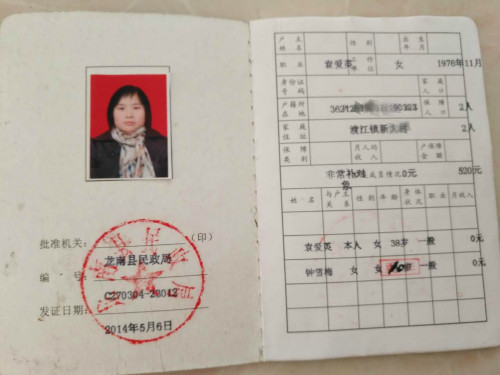 批准机关：
（印）
龙南县民政局
编 号：
C270304-28042
发证日期：
2014年5月6日
户主姓名 性别 出生年月
袁爱英 女 1976年11月
职业 工作单位
身份证号码 家庭人口
2人
户籍所在地 保障人口
渡江镇新 2人
家庭住址 月人均收入 户保障金额
保障类别
非常补对象 0元 520元
成员情况
姓名 与户主关系 性别 年龄 身体状况 职业 月收入
袁爱英 本人 女 38岁 一般 0元
钟雪梅 女 女 一般 0元